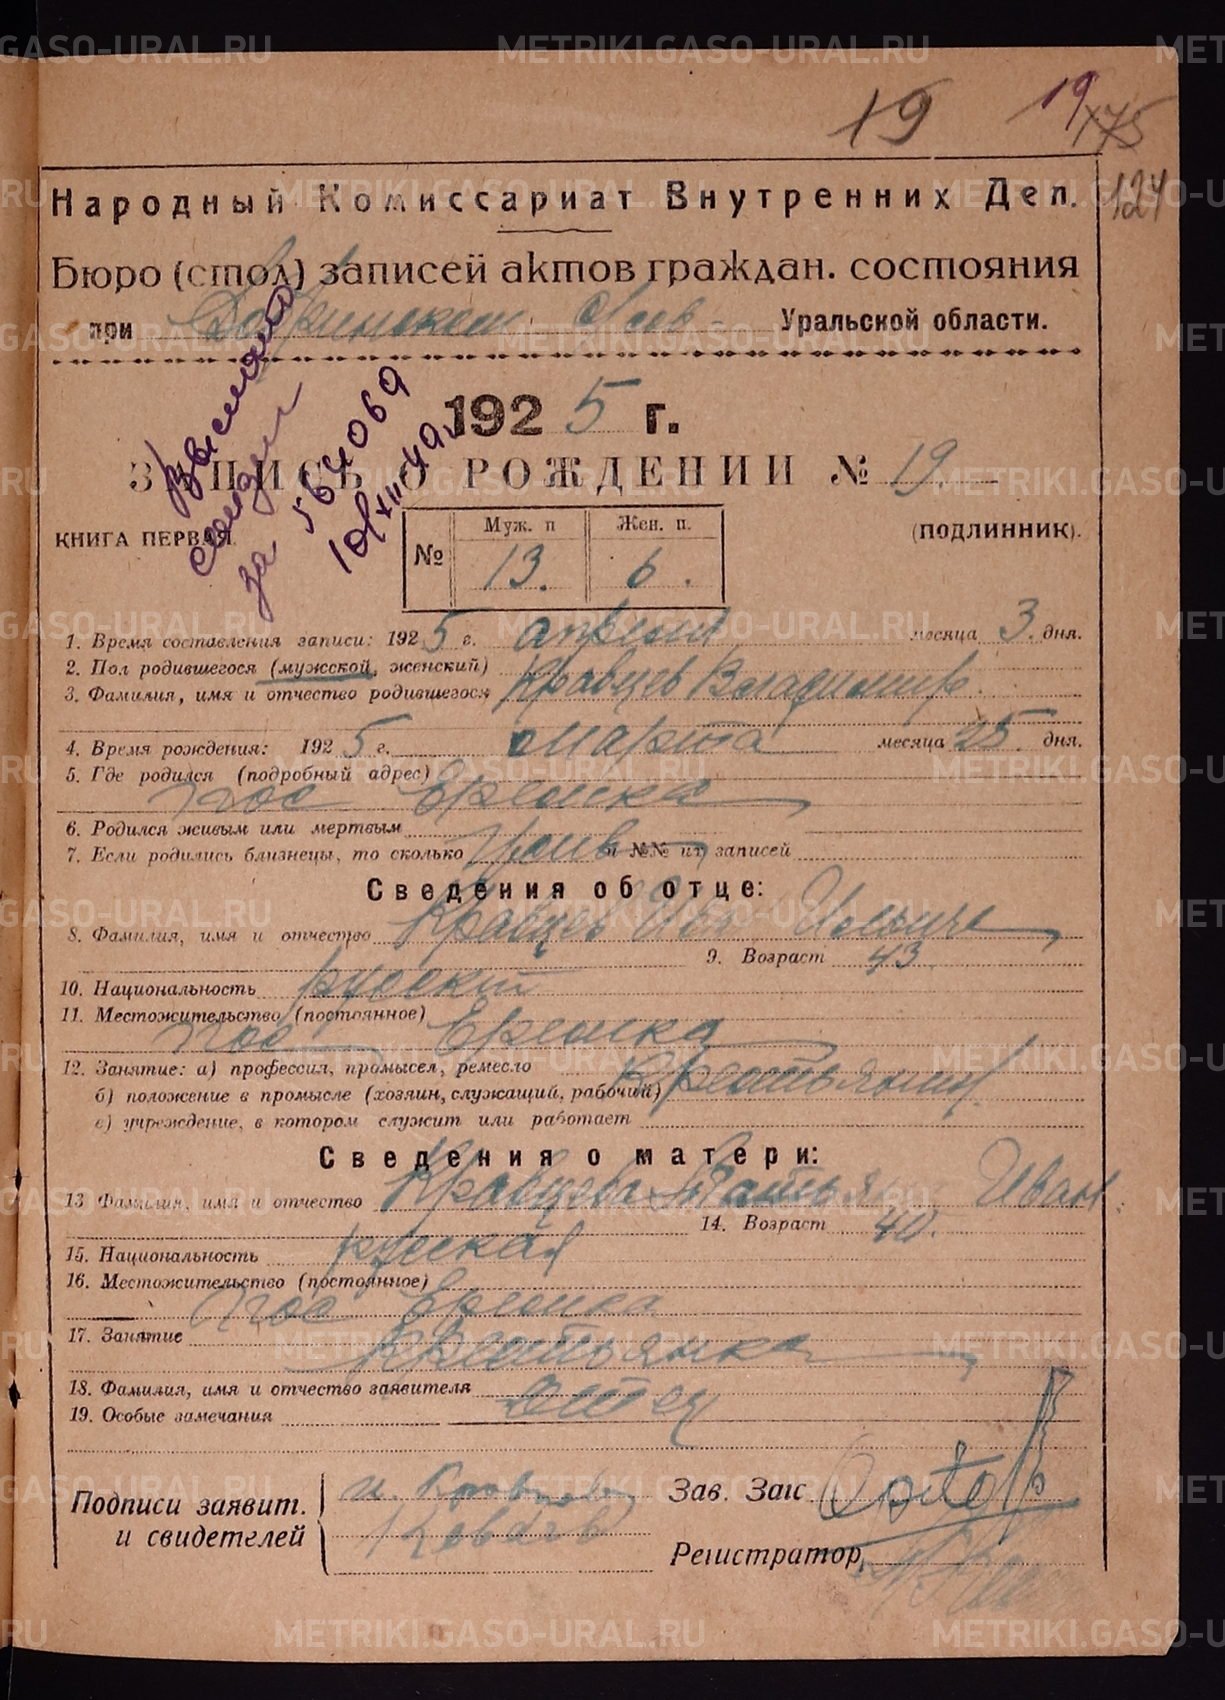 19 19 175
124
Народный Комиссариат Внутренних Дел.
Бюро (стол) записей актов граждан. состояния
при Уральской области.
1925 г.
ЗАПИСЬ О РОЖДЕНИИ № 19.
за 564069
КНИГА ПЕРВАЯ. (ПОДЛИННИК).
№ Муж. п Жен. п.
13. 6.
1. Время составления записи: 1925 г. апреля месяца 3. дня.
2. Пол родившегося (мужской, женский)
3. Фамилия, имя и отчество родившегося Кравцев Владимир.
4. Время рождения: 1925 г. марта месяца 25. дня.
5. Где родился (подробный адрес)
пос Еремка
6. Родился живым или мертвым
7. Если родились близнецы, то сколько и №№ их записей
Сведения об отце:
8. Фамилия, имя и отчество Кравцев Ив Ильич
9. Возраст 43
10. Национальность русский
11. Местожительство (постоянное)
пос Еремка
12. Занятие: а) профессия, промысел, ремесло Крестьянин
б) положение в промысле (хозяин, служащий, рабочий)
в) учреждение, в котором служит или работает
Сведения о матери:
13 Фамилия, имя и отчество Кравцева Татья Иван.
14. Возраст 40.
15. Национальность русская
16. Местожительство (постоянное)
пос Еремка
17. Занятие Крестьянка
18. Фамилия, имя и отчество заявителя отец
19. Особые замечания
Подписи заявит. и. Кравцев Зав. Загс
и свидетелей
Регистратор
METRIKI.GASO-URAL.RU